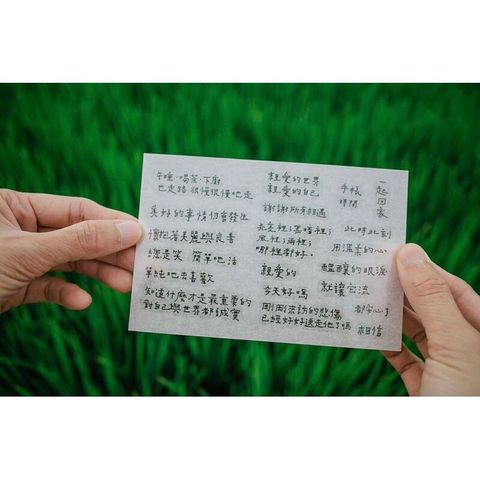 午睡·喝茶·下廚
也走路 很慢很慢地走
美好的事情仍會發生
懷抱著美麗與良善
總是笑 簡單地活
單純地去喜歡
知道什麼才是最重要的
對自己與世界都誠實
親愛的世界
親愛的自己
謝謝所有相遇
光芒裡；黑暗裡；
風裡；雨裡；
哪裡都好。
親愛的
今天好嗎
剛剛來訪的悲傷
已經好好送走他了嗎
手帳
時間
一起回家
此時此刻
用溫柔的心
醞釀的眼淚
就讓它流
都安心了
相信